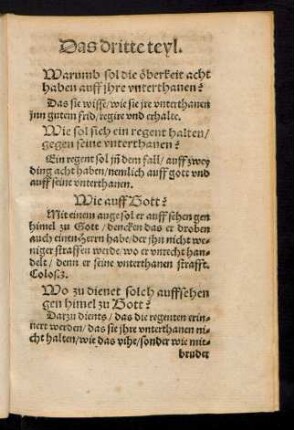 Das dritte teyl.
Warumb sol die öberkeit acht
haben auff jhre vnterthanen?
Das sie wisse/wie sie jre vnterthanen
jnn gutem frid/regire vnd erhalte.
Wie sol sich ein regent halten/
gegen seine vnterthanen?
Ein regent sol jn dem fall/auff zwey
ding acht haben/nemlich auff gott vnd
auff seine vnterthanen.
Wie auff Gott?
Mit einem auge sol er auff sehen gen
himel zu Gott/dencken das er droben
auch einen Herrn habe/der jhn nicht we-
niger straffen werde/wo er vnrecht han-
delt/denn er seine vnterthanen strafft.
Colos.3.
Wo zu dienet solch auffsehen
gen himel zu Gott?
Darzu dients/das die regenten erin-
nert werden/das sie jhre vnterthanen ni-
cht halten/wie das vihe/sonder wie mit-
bruder